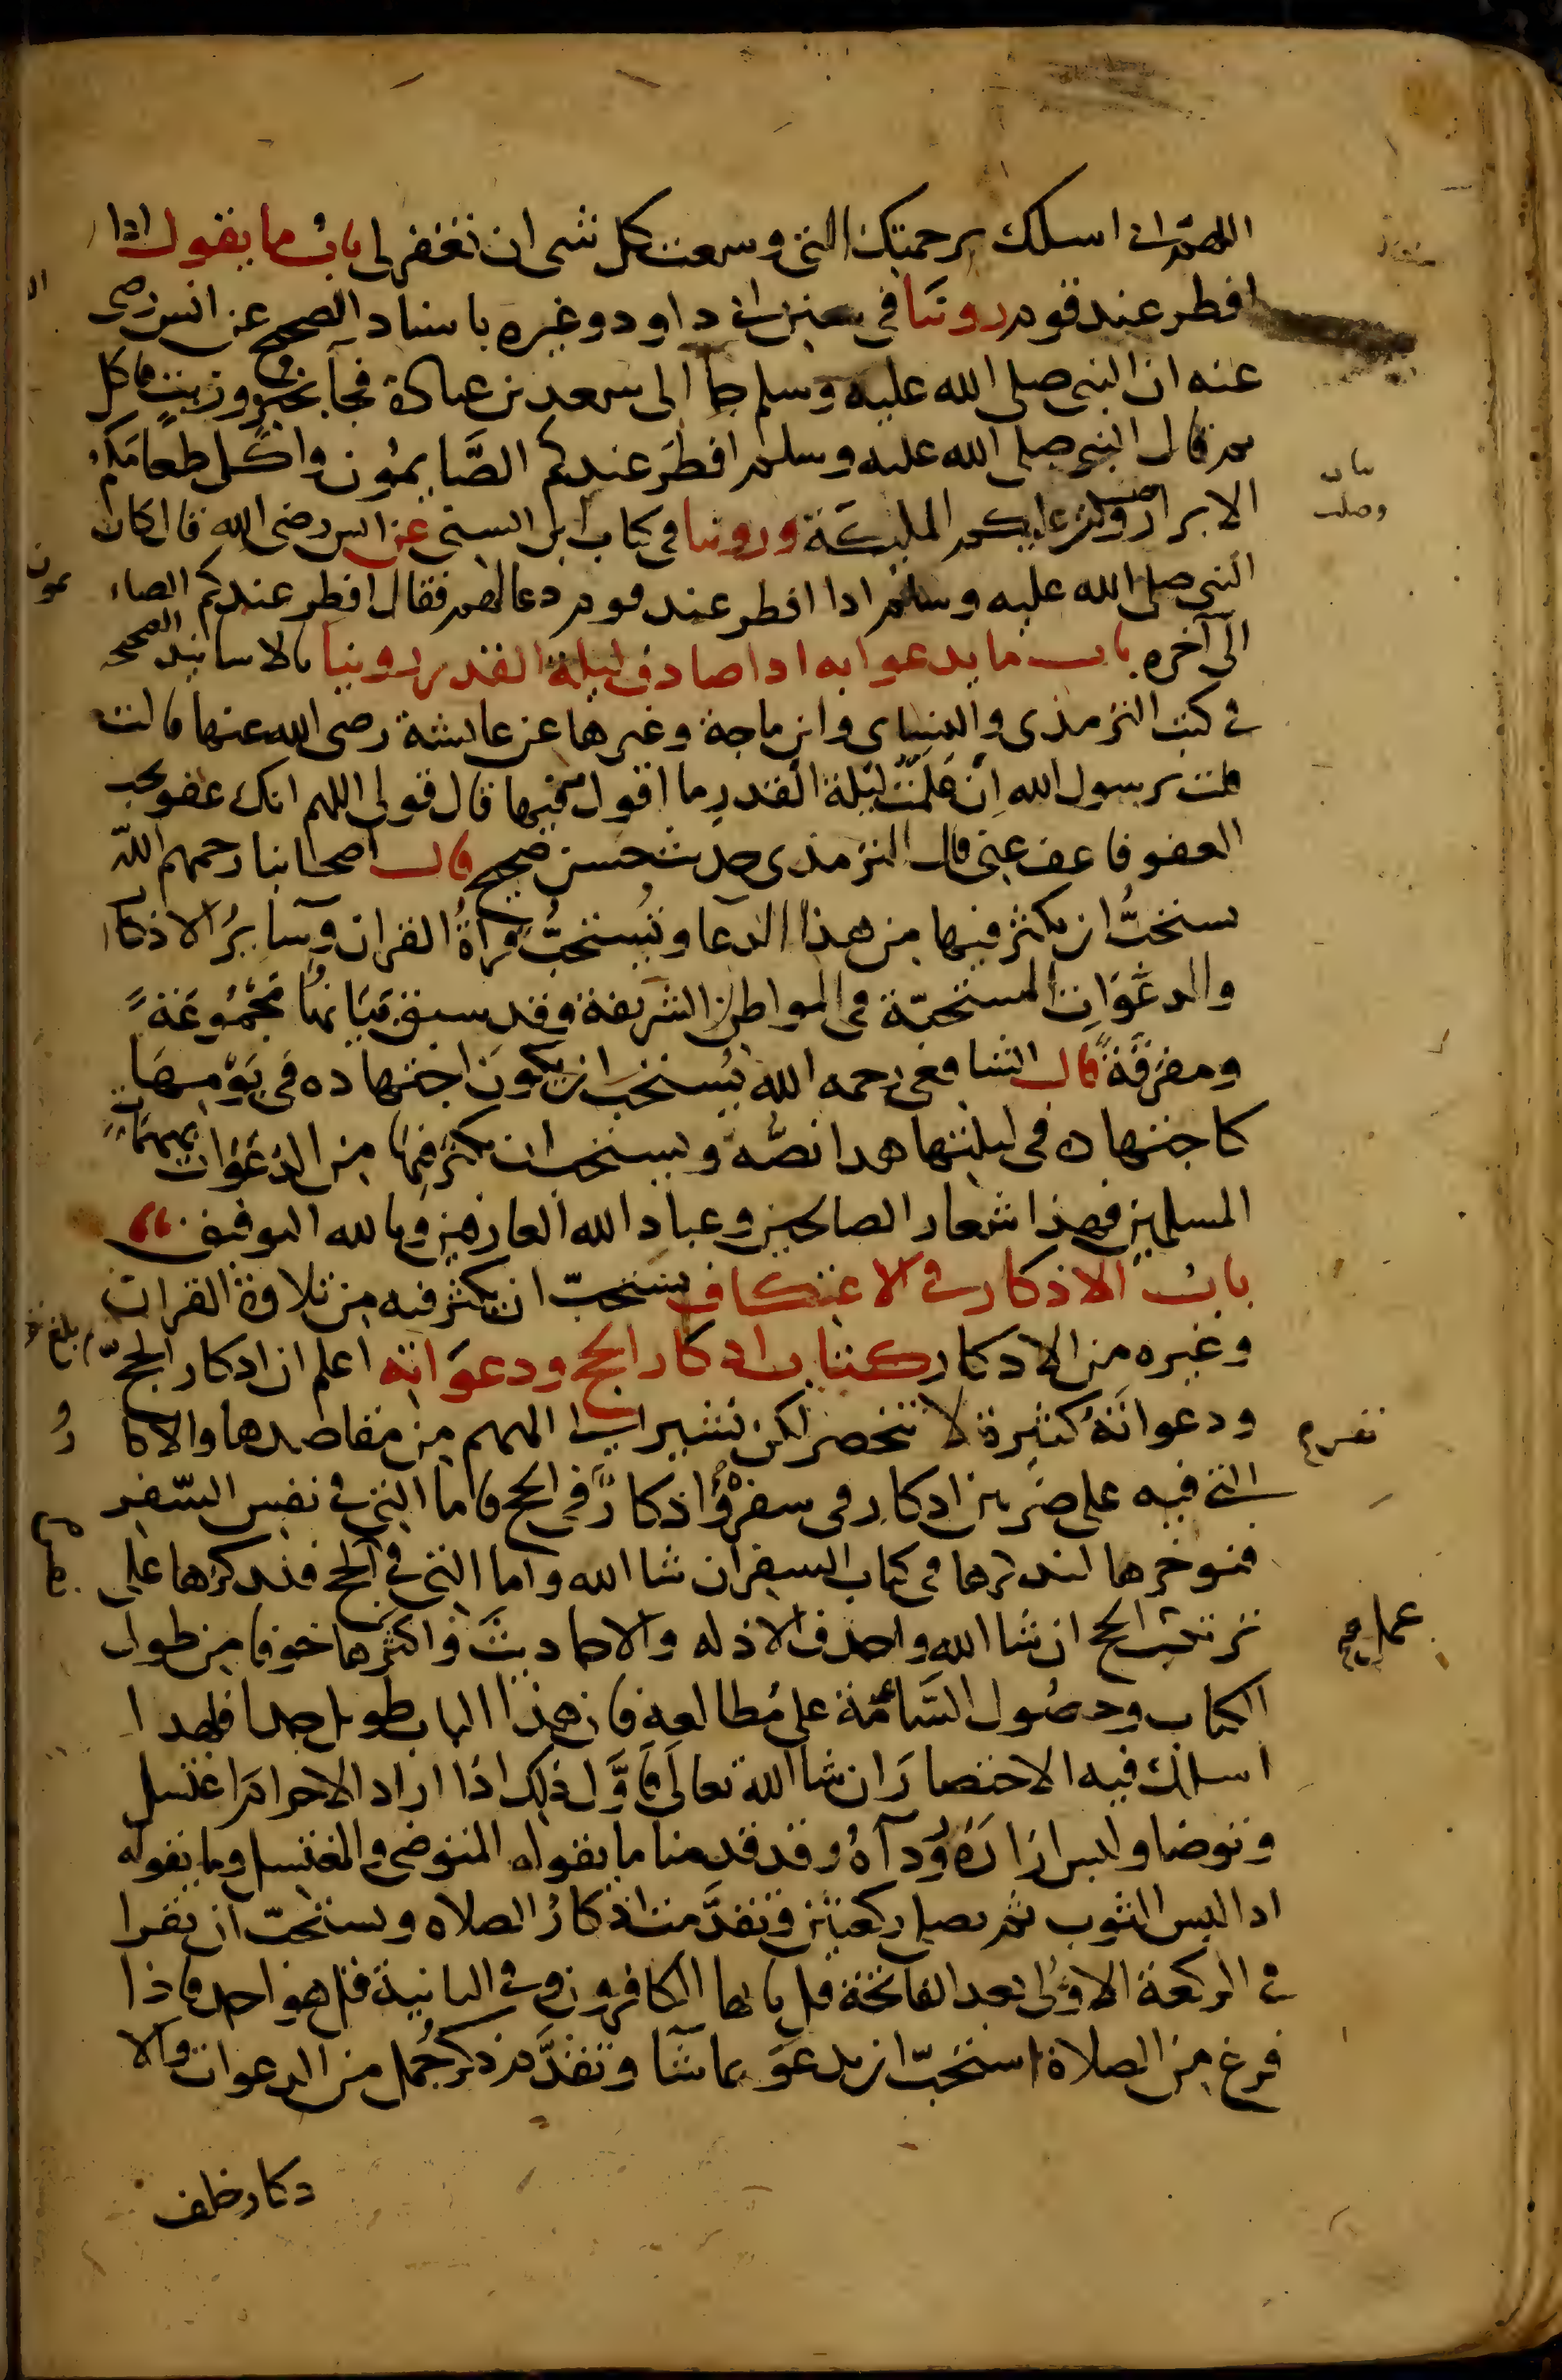 اللهم انى اسلك برحمتك التى وسعت كل شى ان تغفر لى باب ما يقول اذا
افطر عند قوم روينا فى سنن ابى داود وغيره باسناد الصحيح عن انس رضى
عنه ان النبى صلى الله عليه وسلم جا الى سعد بن عبادة فجآ بخبز وزيت فاكل
ثم قال النبى صلى الله عليه وسلم افطر عندكم الصَّايمُون واكل طعَامَكُم
الابرار وصلت عليكم المليكَة وروينا فى كتاب ابن السنى عن انس رضى الله قال كان
النبى صلى الله عليه وسلم اذا افطر عند قوم دعا لهم فقال افطر عندكم الصا يمون
الى آخره باب ما يدعوا به اذا صادف ليلة القدر روينا بالاسانيد الصحيحة
فى كتب الترمذى والنسياى وابن ماجة وغيرها عن عايشة رضى الله عنها قالت
قلت يرسول الله اِن عَلمت ليْلة القدر ما اقول فيها قال قولى اللهم انك عفو تحب
العفو فاعف عنى قال الترمذى حديث حسن صحيح قال اصحابنا رحمهم الله
يستحبُّ ان يكثر فيها من هذا الدعا ويُستحبُّ قراةُ القران وسآيرُ الاذكار
والدعَوَات المستحبّة فى المواطن الشريفة وقد سبق بَيَانها مَجْمُوعَةً
ومفرقةً قال الشافعى رحمه الله يُستحَب ان يكون اجتهاده فى يَوْمِهَا
كاجتهاده فى ليلتها هذا نصُّه ويستحب ان يكثر فيها من الدعَوَات بمهمّات
المسلمين فهذا شعار الصالحين وعباد الله العارفين وبالله التوفيق
باب الاذكار فى الاعتكاف يستحبّ ان يكثر فيه من تلاوة القران
وغيره من الاذكار كتاب اذكار الحج ودعوَاته اعلم ان اذكار الحجّ
ودعواتَهُ كثيرة لا تنحصر لكن نشير الى المهم من مقاصدها والاذكا رُ
التى فيه على ضربين اذكار فى سفره واذكارٌ فى الحج فاما التى فى نفس السّفر
فنوخرها لنذكرها فى كتاب السفر ان شا الله واما التى فى الحج فنذكرها على
ترتيب الحج ان شا الله واحذف الادله والاحاديث فى اكثرها خوفا من طول
الكتاب وحصُول السَّآمَة على مُطالعهِ فان هذا الباب طويل جدا فلهذا
اسلك فيه الاختصارَ ان شا الله تعالَى فاوَّل ذلك اذا اراد الاحرام اغتسل
وتوضا ولبس ازارَهُ وردآهُ وقد قدمنا ما يقوله المتوضى والمغتسل وما يقوله
اذا لبس الثوب ثم يصلى ركعتين وتقدَّمت اذكارُ الصلاه ويستحبّ ان يقرا
فى الركعة الاوْلى بعد الفاتحة قل يايها الكافرون وفى الثانية قل هو احد فاذا
فرغ من الصلاة استحبّ ان يدعوَ بما شآ وتقدَّم ذكر جُمل من الدعوات والا
ذكار خلف